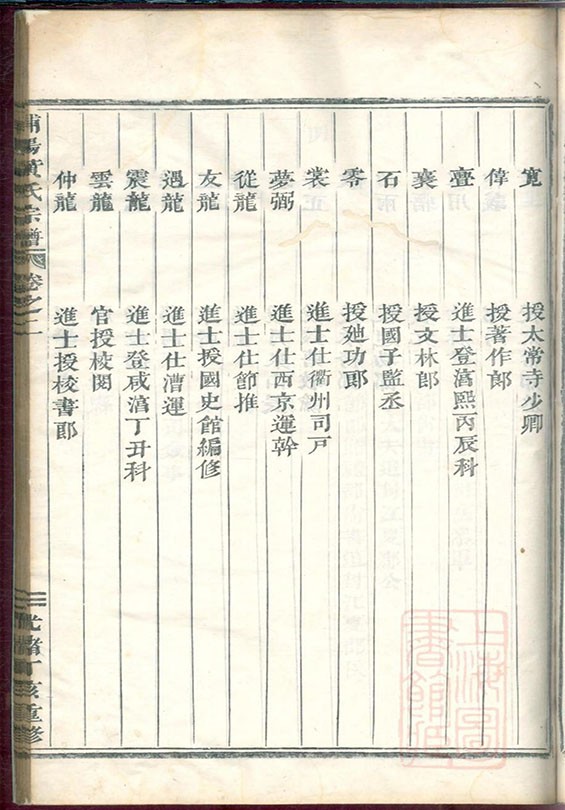 寬 授太常寺少卿
偉 授著作郎
疊 進士登淳熙丙辰科
襄 授文林郎
石 授國子監丞
零 授廸功郎
裳 進士仕衢州司戸
夢弼 進士仕西京運幹
從龍 進士仕節推
友龍 進士授國史館編修
遇龍 進士仕漕運
震龍 進士登咸淳丁丑科
雲龍 官授校閱
仲龍 進士授校書郎
浦陽黃氏宗譜 卷之二
光緒丁亥重修
上海圖書館藏